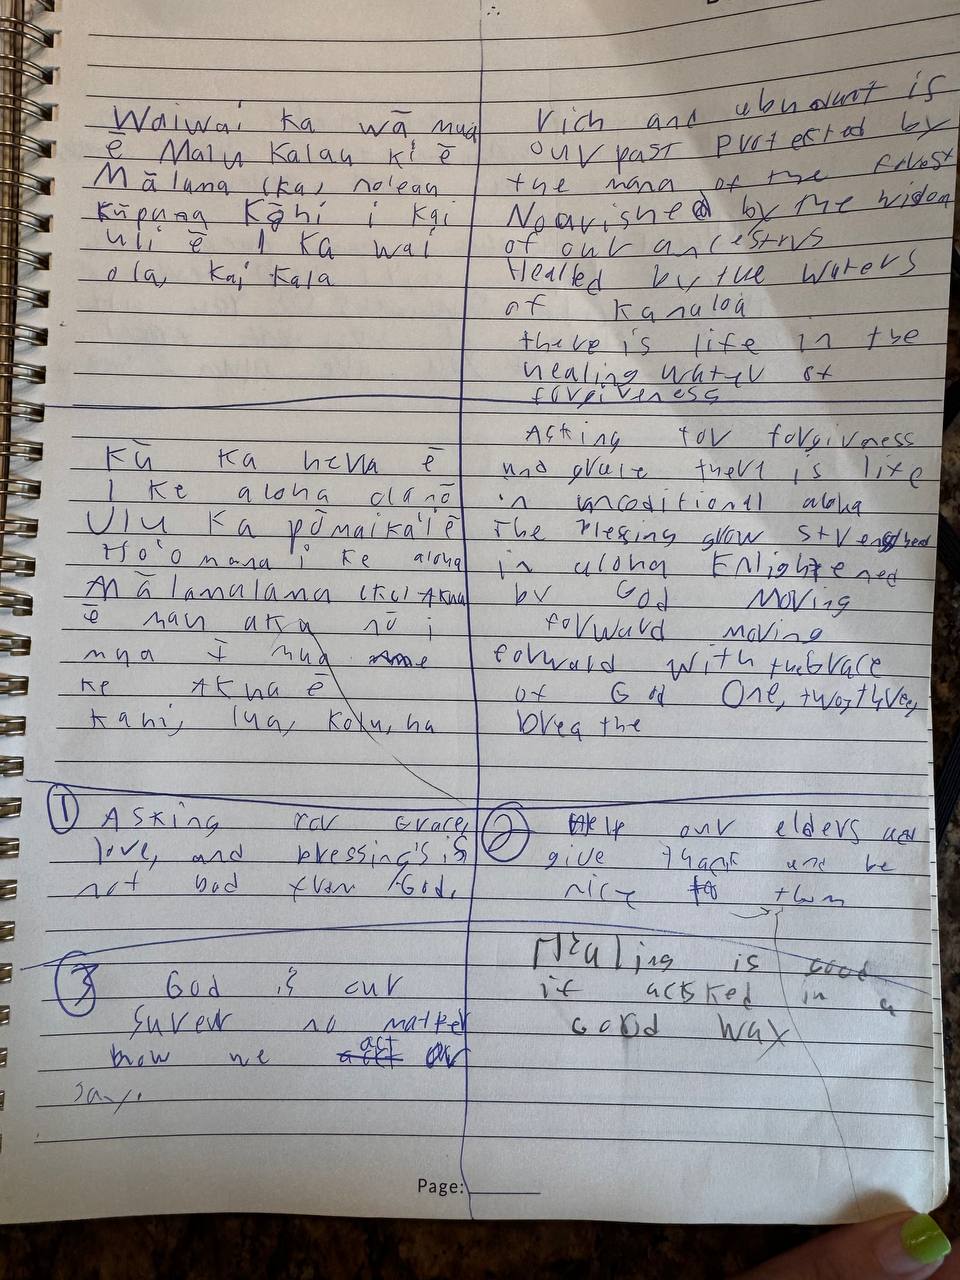 Waiwai ka wā mua
ē Malu Kalau ki ē
Mālama (ka) no'eau
kūpuna Kāhi i kai
uli ē I Ka wai
ola, kai kala
rich and abundant is
our past protected by
the mana of the forest
Nourished by the widom
of our ancestrus
Healed by the waters
of Kanaloa
there is life in the
healing water of
forgiveness
Kū ka heva ē
I ke aloha ola nō
Ulu Ka pōmaika'i ē
Ho'o mana i ke aloha
Mālamalama (Ka) Akua
ē nau aku nō i
mua I mua
ke Akua ē
Kahi, lua, kolu, ha
Asking for forgivness
and grace there is life
in uncoditional aloha
The blessing grow
in aloha Enlightened
by God Moving
forward moving
forward with the Grace
of God One, two, three,
breathe
① Asking for Grace,
love, and blessing's is
not bad from God.
② Help our elders and
give thank and be
nice to them
③ God is our
no matter
how we act or
say.
Healing is good
if actsked in a
good way
Page: